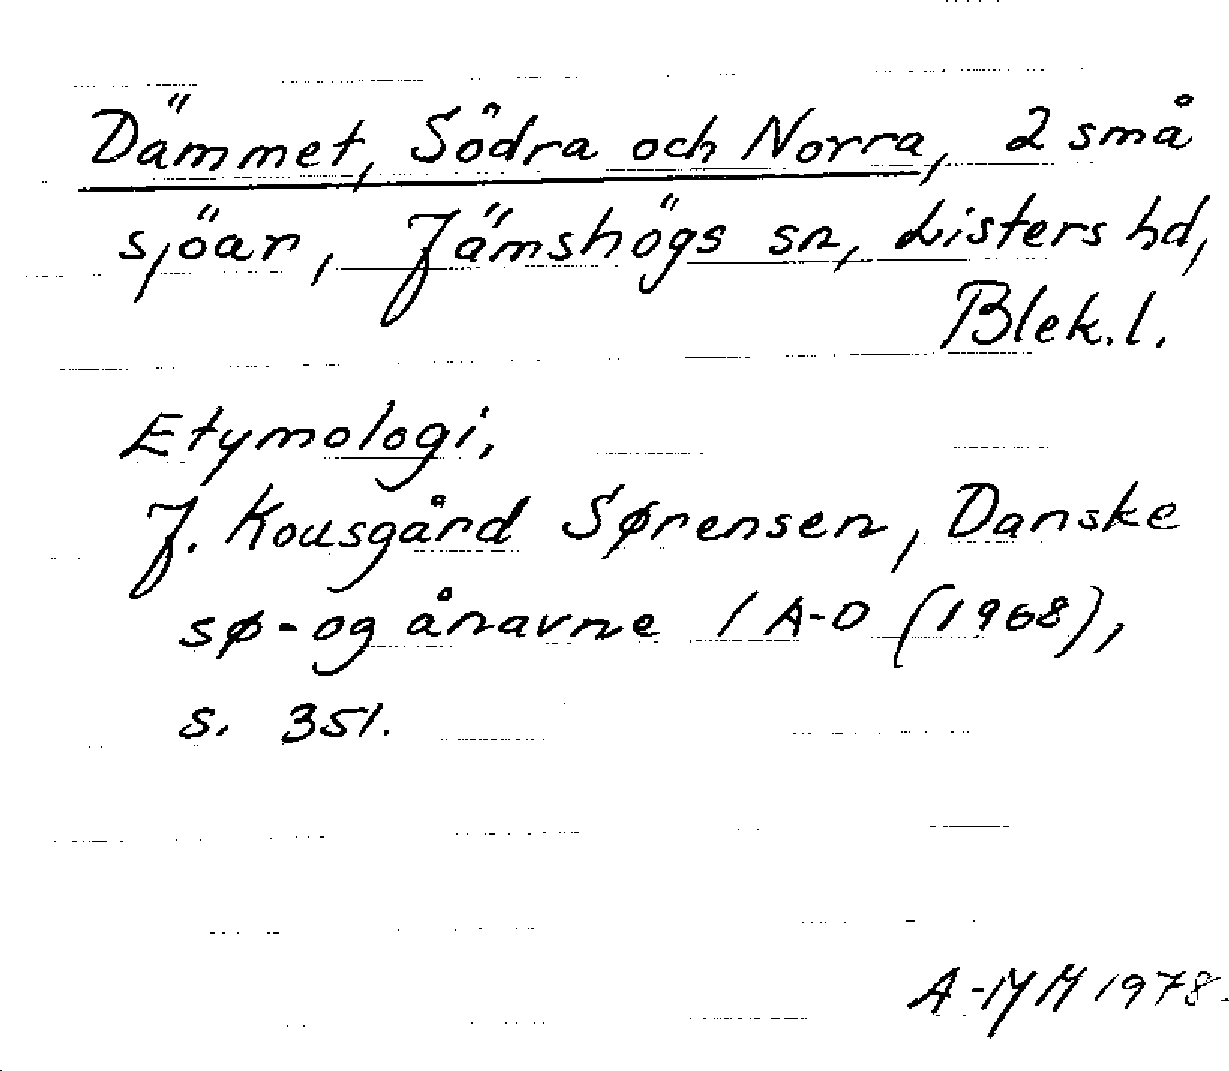 Dämmet, Södra och Norra, 2 små
sjöar, Jämshögs sn, Listers hd,
Blek. l.
Etymologi.
J. Kousgård Sørensen, Danske
sø- og ånavne 1 A-D (1968),
s. 351.
A-MH 1978.